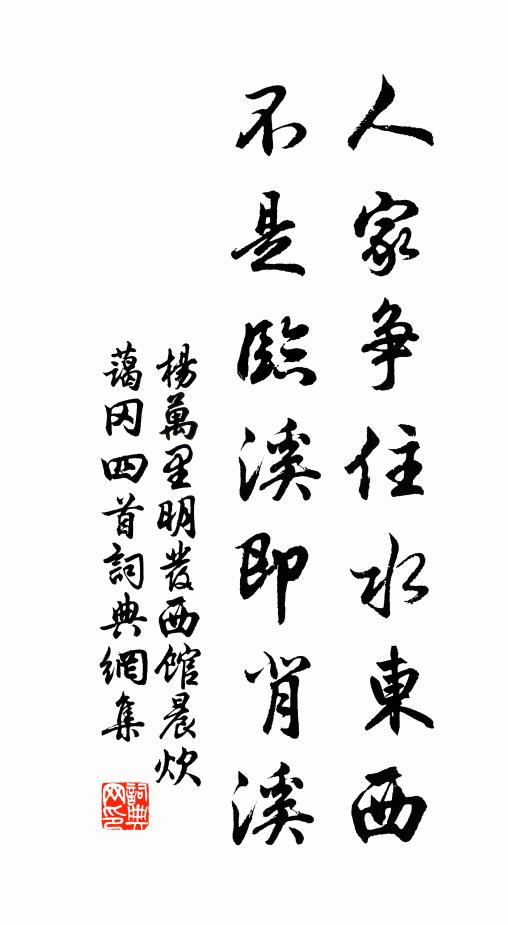 人家爭住水東西
不是臨溪即背溪
楊萬里明發西館晨炊
藹冈四首詞典網集
詞典网印